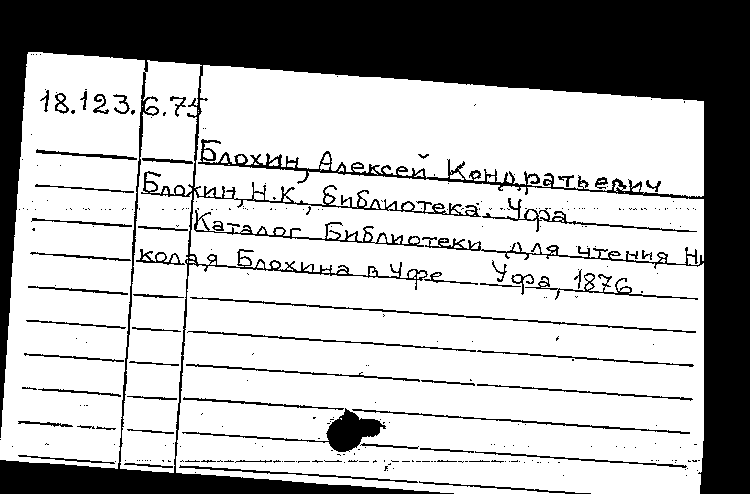 18.123.6.75
Блохин, Алексей Кондратьевич
Блохин, Н.К., библиотека. Уфа.
Каталог Библиотеки для чтения Ни
колая Блохина в Уфе Уфа, 1876.